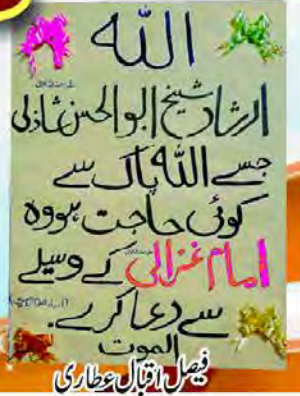 اللہ
ارشاد شیخ ابوالحسن شاذلی
جسے اللہ پاک سے
کوئی حاجت ہو وہ
امام غزالی کے وسیلے
سے دعا کرے۔
الموت
فیصل اقبال عطاری